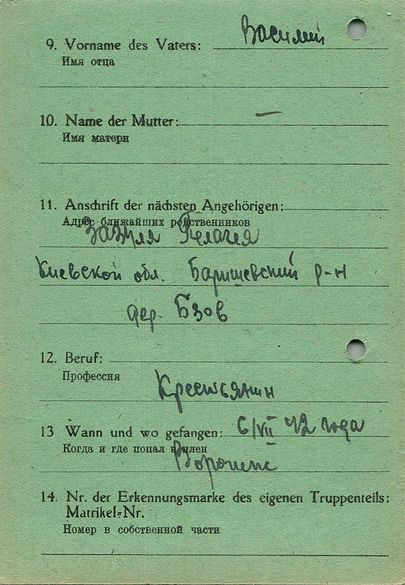 9. Vorname des Vaters: Василий
Имя отца
10. Name der Mutter: —
Имя матери
11. Anschrift der nächsten Angehörigen:
Адрес ближайших родственников
Зазуля Пелагея
Киевской обл. Баришевский р-н
дер. Бзов
12. Beruf:
Профессия
Крестьянин
13 Wann und wo gefangen: 6/VII 42 года
Когда и где попал в плен
Воронеж
14. Nr. der Erkennungsmarke des eigenen Truppenteils:
Matrikel-Nr.
Номер в собственной части